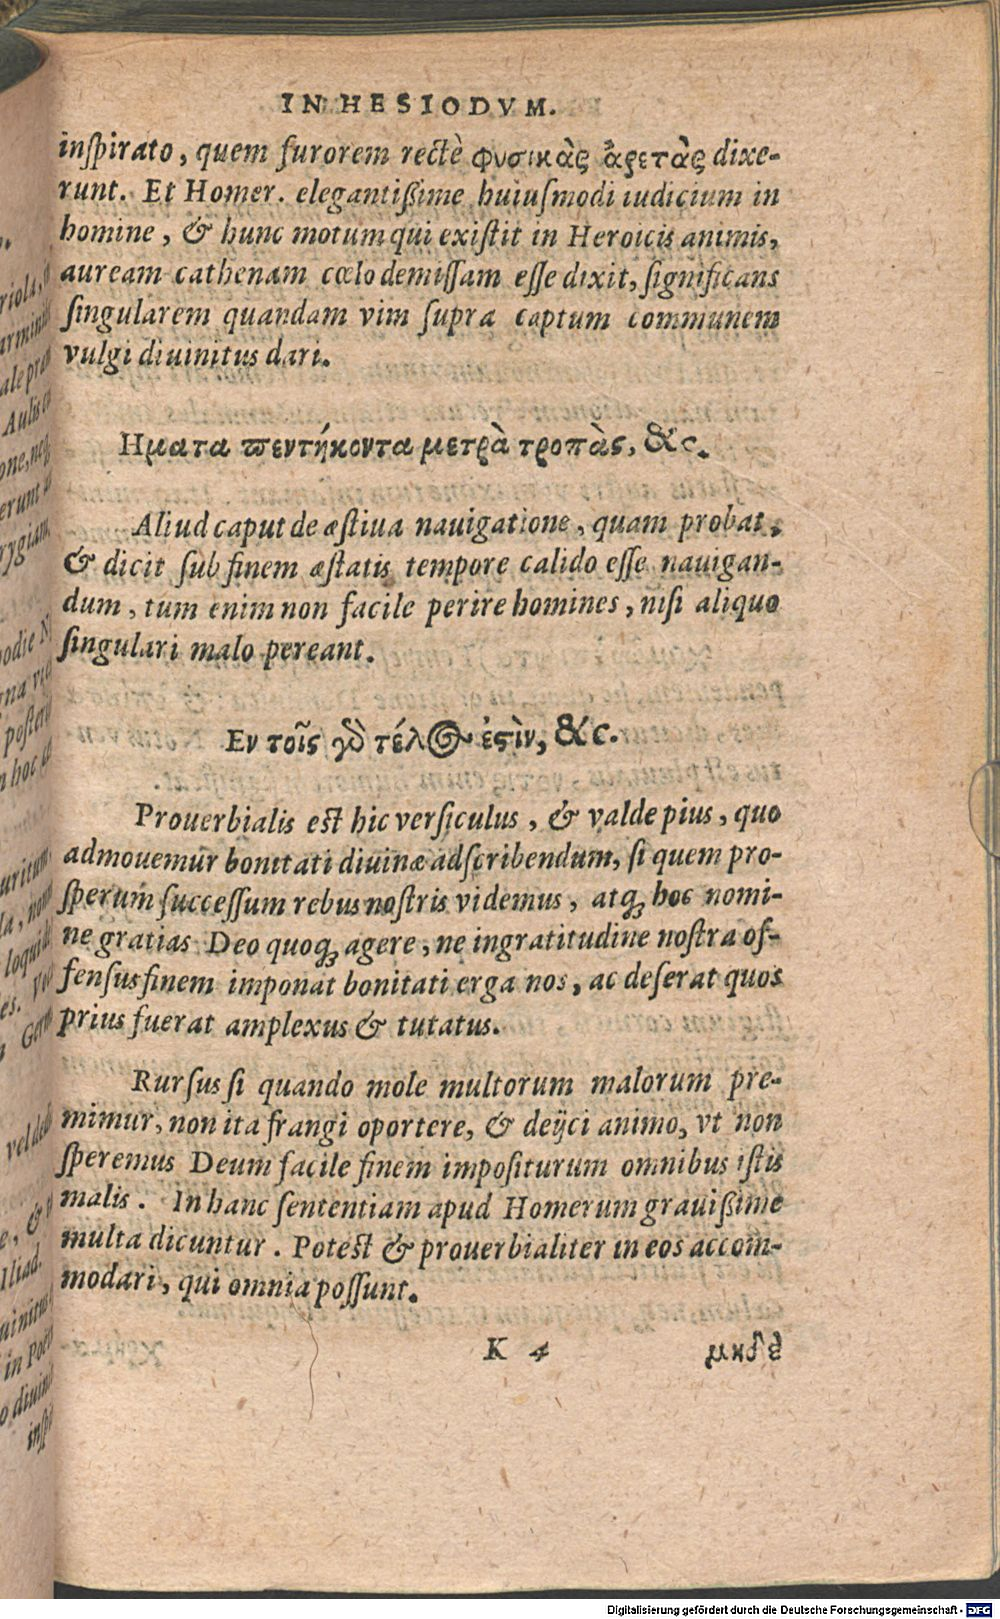 IN HESIODVM.
inſpirato, quem furorem rectè φυσικὰς ἀρετὰς dixe-
runt. Et Homer. elegantißime huiuſmodi iudicium in
homine, & hunc motum qui exiſtit in Heroicis animis,
auream cathenam cœlo demiſſam eſſe dixit, ſignificans
ſingularem quandam vim ſupra captum communem
vulgi diuinitus dari.
Ηματα πεντήκοντα μετρὰ τροπὰς, &c.
Aliud caput de æſtiua nauigatione, quam probat,
& dicit ſub finem æſtatis tempore calido eſſe nauigan-
dum, tum enim non facile perire homines, niſi aliquo
ſingulari malo pereant.
Εν τοῖς γὸ τέλος ἐςὶν, &c.
Prouerbialis eſt hic verſiculus, & valde pius, quo
admouemur bonitati diuinæ adſcribendum, ſi quem pro-
ſperum ſucceſſum rebus noſtris videmus, atq́; hoc nomi-
ne gratias Deo quoq́; agere, ne ingratitudine noſtra of-
fenſus finem imponat bonitati erga nos, ac deſerat quos
prius fuerat amplexus & tutatus.
Rurſus ſi quando mole multorum malorum pre-
mimur, non ita frangi oportere, & deijci animo, vt non
ſperemus Deum facile finem impoſiturum omnibus iſtis
malis. In hanc ſententiam apud Homerum grauißime
multa dicuntur. Poteſt & prouerbialiter in eos accom-
modari, qui omnia poſſunt.
K 4 μηδὲ
Digitalisierung gefördert durch die Deutsche Forschungsgemeinschaft - DFG